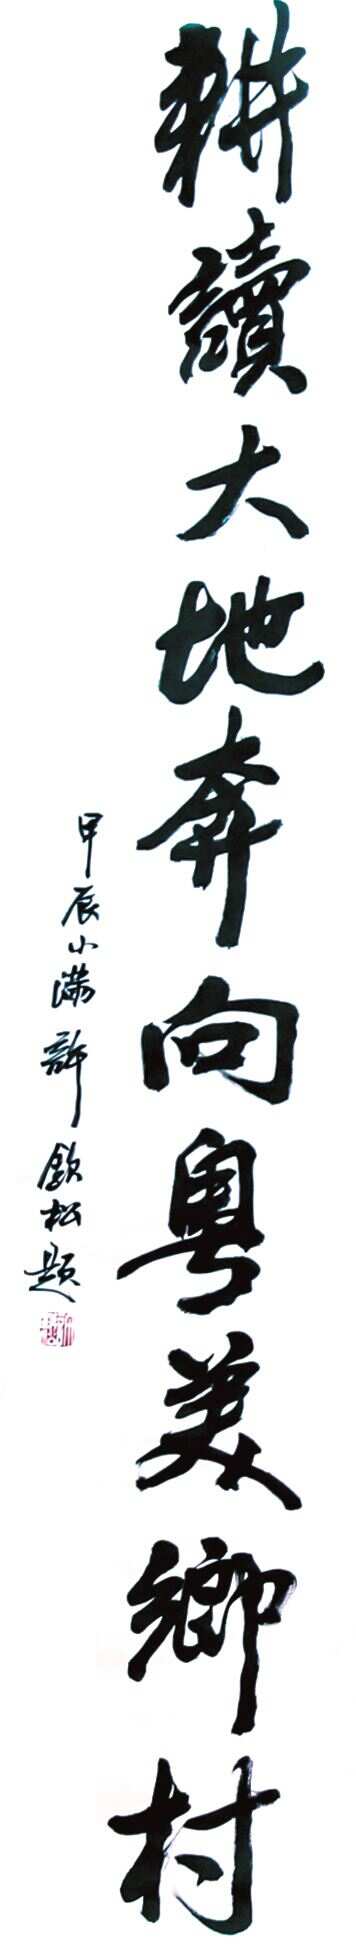 耕讀大地奔向粵美鄉村
甲辰小滿許欽松題